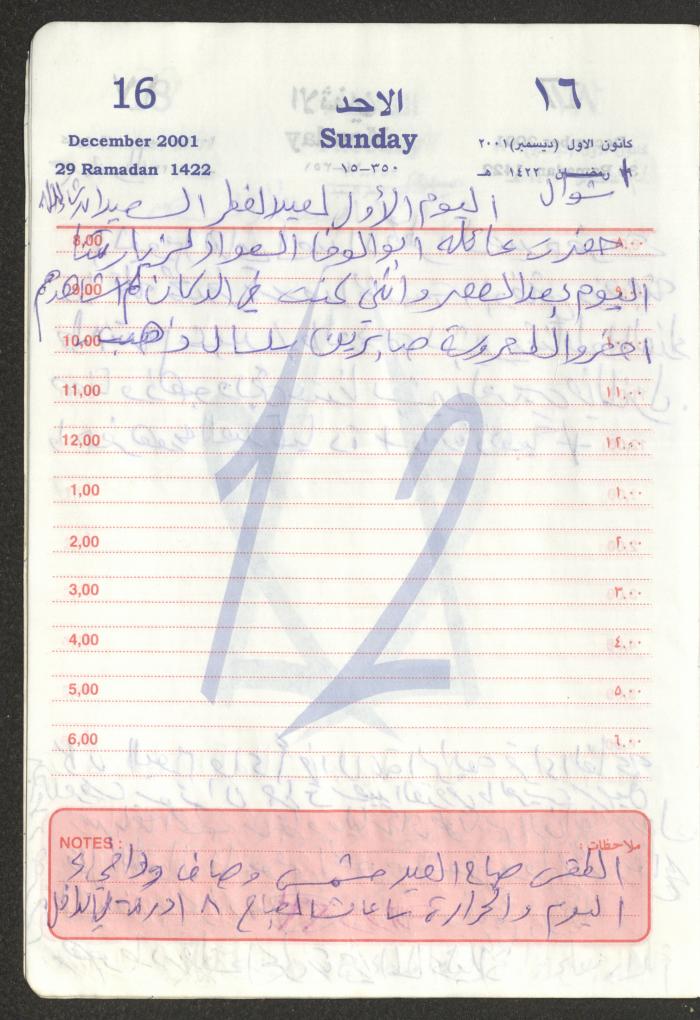 16 الاحد ١٦
December 2001 Sunday كانون الاول (ديسمبر) ٢٠٠١
29 Ramadan 1422 ٣٥٠-١٥ رمضان ١٤٢٢ هـ
١ شوال
اليوم الأول لعيد الفطر السعيد
8,00 حضرت عائلة ابو الوفا العواد لزيارتنا ٨,٠٠
9,00 اليوم بعد العصر وانني كنت في الدكان لم اشاهدهم ٩,٠٠
10,00 احضروا لمحروسة صابرين ذهب ١٠,٠٠
11,00 ١١,٠٠
12,00 ١٢,٠٠
1,00 ١,٠٠
2,00 ٢,٠٠
3,00 ٣,٠٠
4,00 ٤,٠٠
5,00 ٥,٠٠
6,00 ٦,٠٠
12
NOTES : ملاحظات :
الطقس صباح العيد مشمس وصافي
اليوم والحرارة ساعات الصباح ٨ ادرجة في الداخل